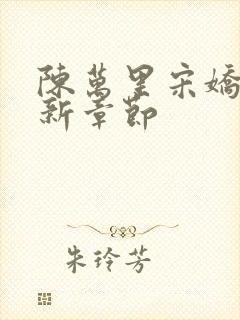 陳萬里宋嬌
新章節
朱玲芳